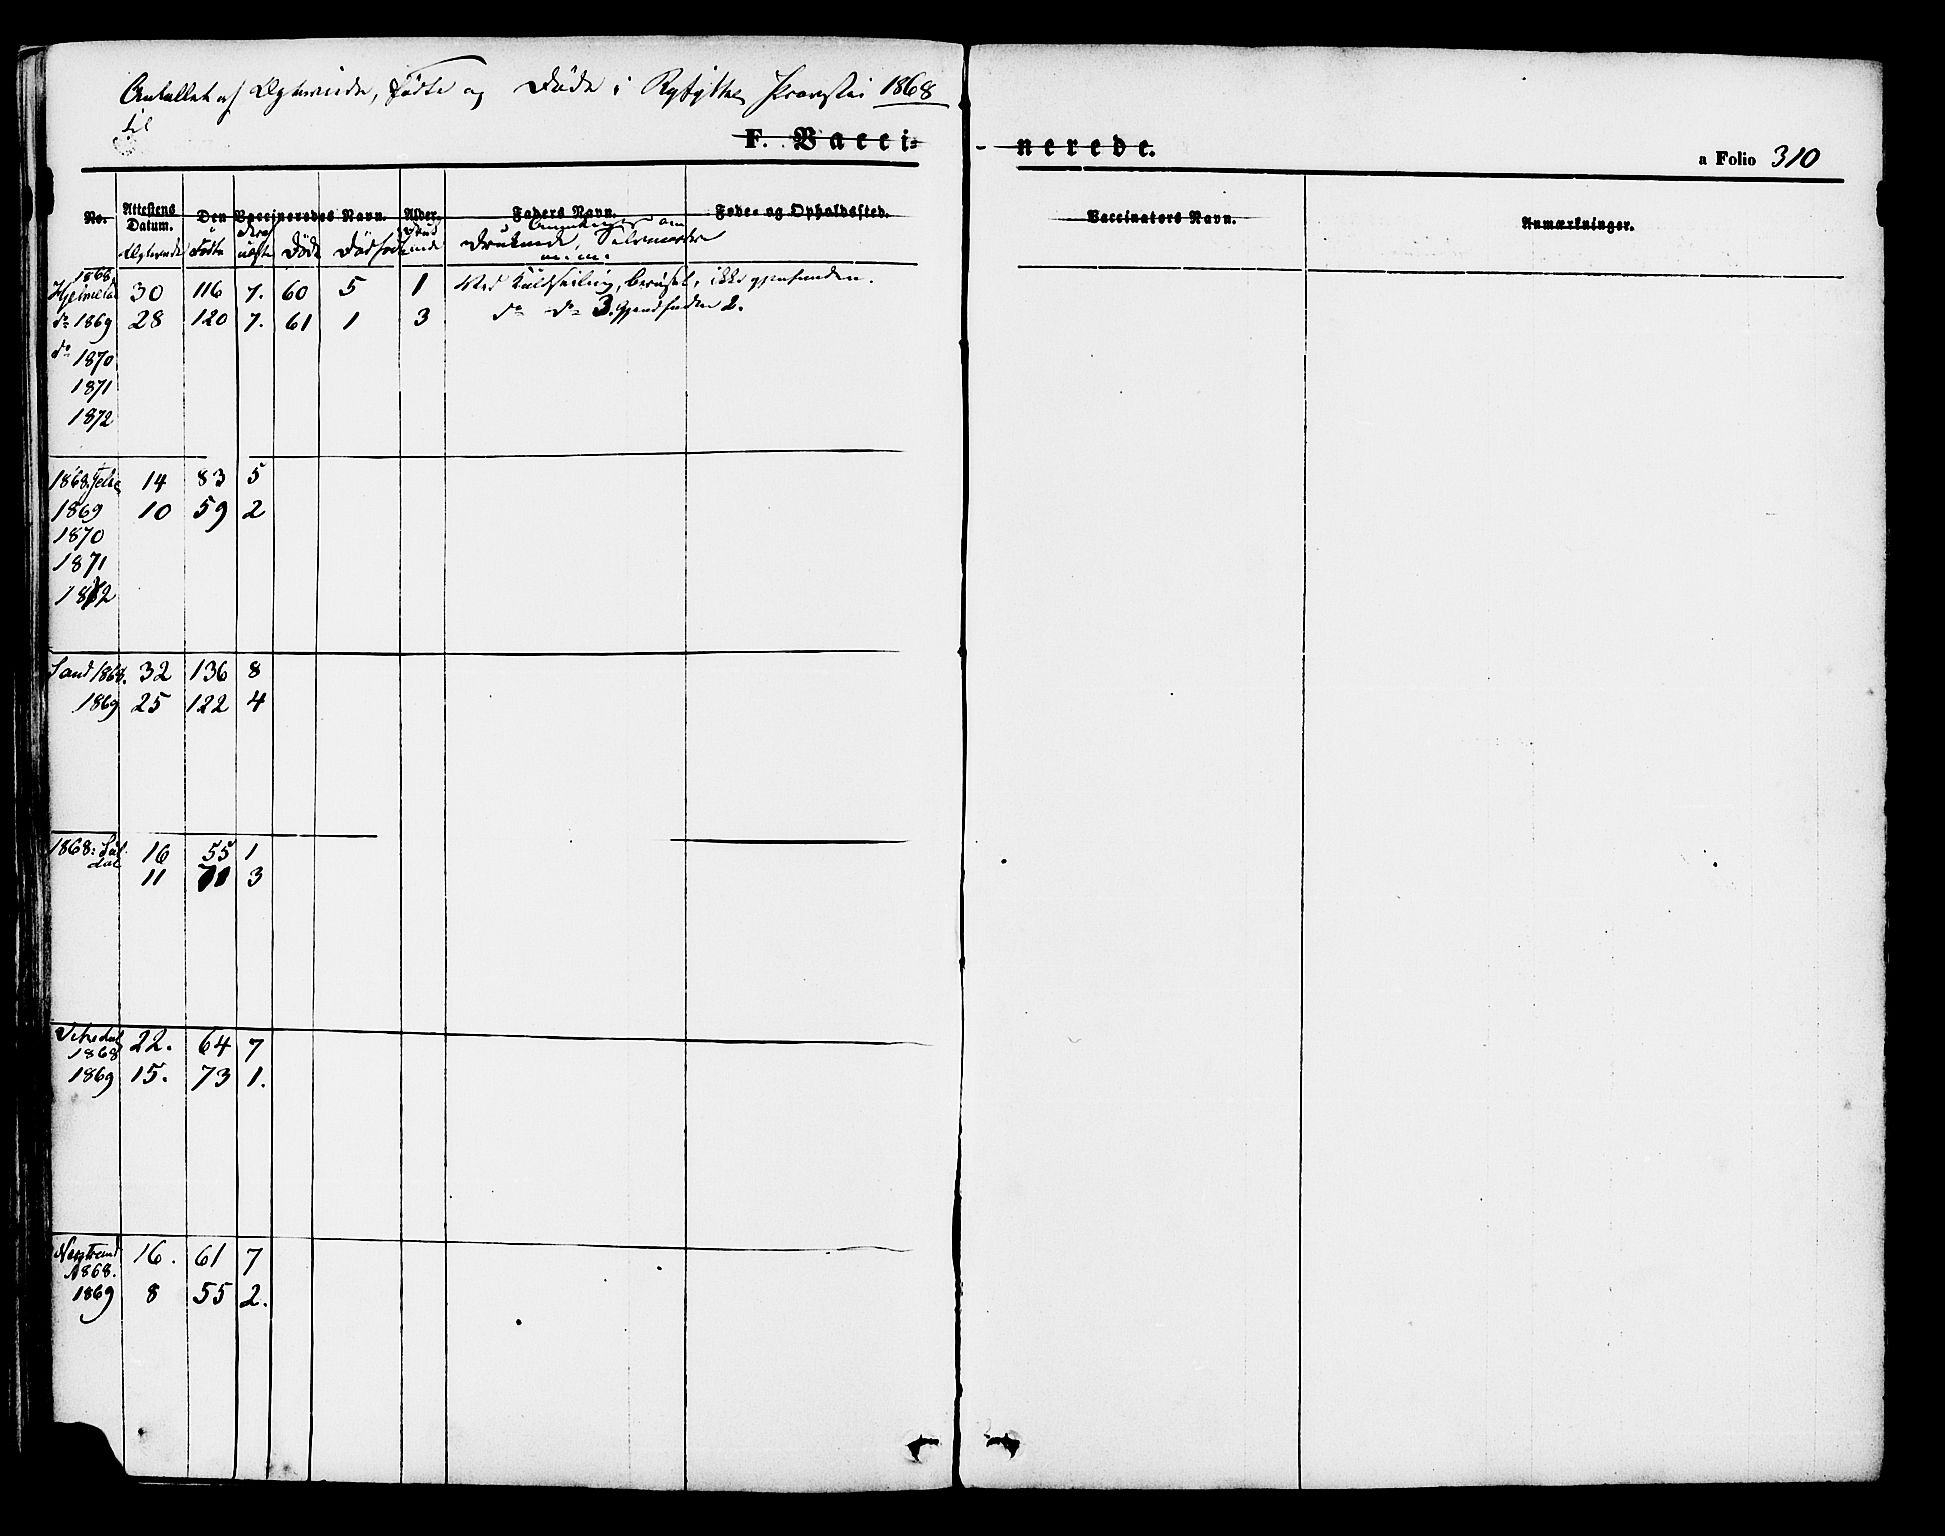 Antallet af Ægteviede, Födte og Döde i Ryfylke Provsti 1868
til
F. Vacci- nerede.
a Folio 310
No. Attestens Datum. Den Vaccineredes Navn. Alder. Faders Navn. Føde- og Opholdssted. Vaccinators Navn. Anmærkninger.
Ægteviede Födte uægte Döde Dödfödte
m.m.
1868
Hjelmeland 30 116 7. 60 5 1 Ved Kulseiling, beruset, ikke gjenfunden.
do 1869 28 120 7. 61 1 3 do do 3. gjenfunden 2.
do 1870
1871
1872
1868. Jelse 14 83 5
1869 10 59 2
1870
1871
1872
Sand 1868. 32 136 8
1869 25 122 4
1868: Suldal 16 55 1
11 71 3
Vikedal 22. 64 7
1868
1869 15. 73 1.
Nerstrand 16. 61 7
1868.
1869 8 55 2.